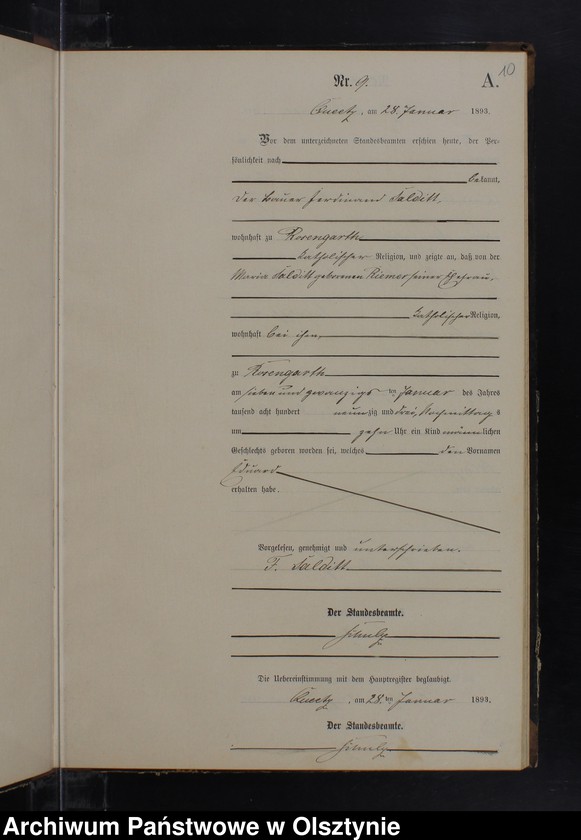 10
Nr. 9. A.
Queetz, am 28. Januar 1893.
Vor dem unterzeichneten Standesbeamten erschien heute, der Per-
sönlichkeit nach
bekannt,
der Bauer Ferdinand Salditt,
wohnhaft zu Rosengarth
katholischer Religion, und zeigte an, daß von der
Maria Salditt geborenen Riemer seiner Ehefrau,
katholischer Religion,
wohnhaft bei ihm,
zu Rosengarth
am sieben und zwanzigsten Januar des Jahres
tausend acht hundert neunzig und drei, Nachmittags
um zehn Uhr ein Kind männlichen
Geschlechts geboren worden sei, welches den Vornamen
Eduard
erhalten habe.
Vorgelesen, genehmigt und unterschrieben.
F. Salditt
Der Standesbeamte.
Schulz
Die Uebereinstimmung mit dem Hauptregister beglaubigt.
Queetz, am 28. ten Januar 1893.
Der Standesbeamte.
Schulz
Archiwum Państwowe w Olsztynie